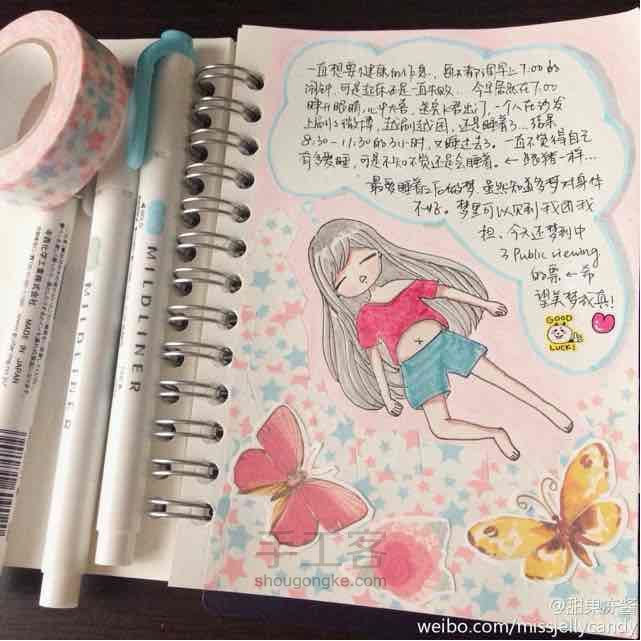 一直想要个健康的作息，每天都调早上7:00的
闹钟，可是起床还是一直失败… 今早居然在7:00
睁开眼睛，心中大喜，送某K君出门，一个人在沙发
上刷了微博，越刷越困，还是睡着了…结果
8:30-11:30的3小时，又睡过去了。一直不觉得自己
有多嗜睡，可是不知不觉还是会睡着。←跟猪一样…
最爱睡着之后的梦 虽然知道多梦对身体
不好。梦里可以见到我团我
担、今天还梦到中
了Public viewing
的票←希
望美梦成真！
GOOD
LUCK!
MILDLINER
MILDLINER
MADE IN JAPAN
手工客
shougongke.com
@甜果冻酱
weibo.com/missjellycandy